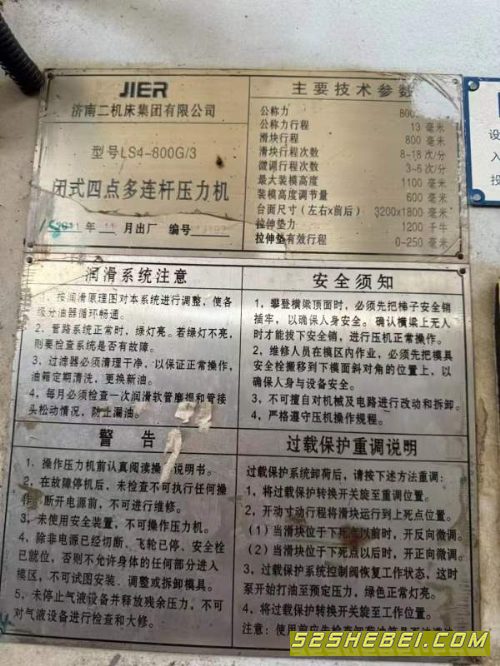 JIER
济南二机床集团有限公司
型号LS4-800G/3
闭式四点多连杆压力机
2011年11月出厂 编号
主要技术参数
公称力 800
公称力行程 13 毫米
滑块行程 800 毫米
滑块行程次数 8-18 次/分
微调行程次数 3-6 次/分
最大装模高度 1100 毫米
装模高度调节量 600 毫米
台面尺寸(左右x前后) 3200x1800 毫米
拉伸垫力 1200 千牛
拉伸垫有效行程 0-250 毫米
润滑系统注意
1、按润滑原理图对本系统进行调整,使各
级分油器循环畅通。
2、管路系统正常时,绿灯亮。若绿灯不亮,
则要检查系统是否有故障。
3、过滤器必须清理干净,以保证正常操作,
油箱定期清洗,更换新油。
4、每月必须检查一次润滑软管磨损和管接
头松动情况,防止漏油。
安全须知
1、攀登横梁顶面时,必须先把梯子安全销
插牢,以确保人身安全。确认横梁上无人
时才能拔下安全销,进行压机正常操作。
2、维修人员在模区内作业,必须先把模具
安全栓搬移到下模面斜对角的位置上,以
确保人身与设备安全。
3、不可擅自对机械及电路进行改动和拆卸。
4、严格遵守压机操作规程。
警告
1、操作压力机前认真阅读操作说明书。
2、在故障停机后,未检查不可执行任何操
作,断开电源前,不可进行维修。
3、未使用安全装置,不可操作压力机。
4、除非电源已经切断、飞轮已停、安全栓
已就位,否则不允许身体的任何部分进入
模区,不可试图安装、调整或拆卸模具。
5、未停止气液设备并释放残余压力,不可
对气液设备进行检查和大修。
过载保护重调说明
过载保护系统卸荷后,请按下述方法重调:
1、将过载保护转换开关旋至重调位置。
2、开动寸动行程将滑块运行到上死点位置。
(1)当滑块位于下死点以前时,开反向微调。
(2)当滑块位于下死点以后时,开正向微调。
3、过载保护系统控制阀恢复工作状态,这时
泵开始打油至预定压力,绿色正常灯亮。
4、将过载保护转换开关旋至工作位置。
设
入
投
52SHEBEI.COM